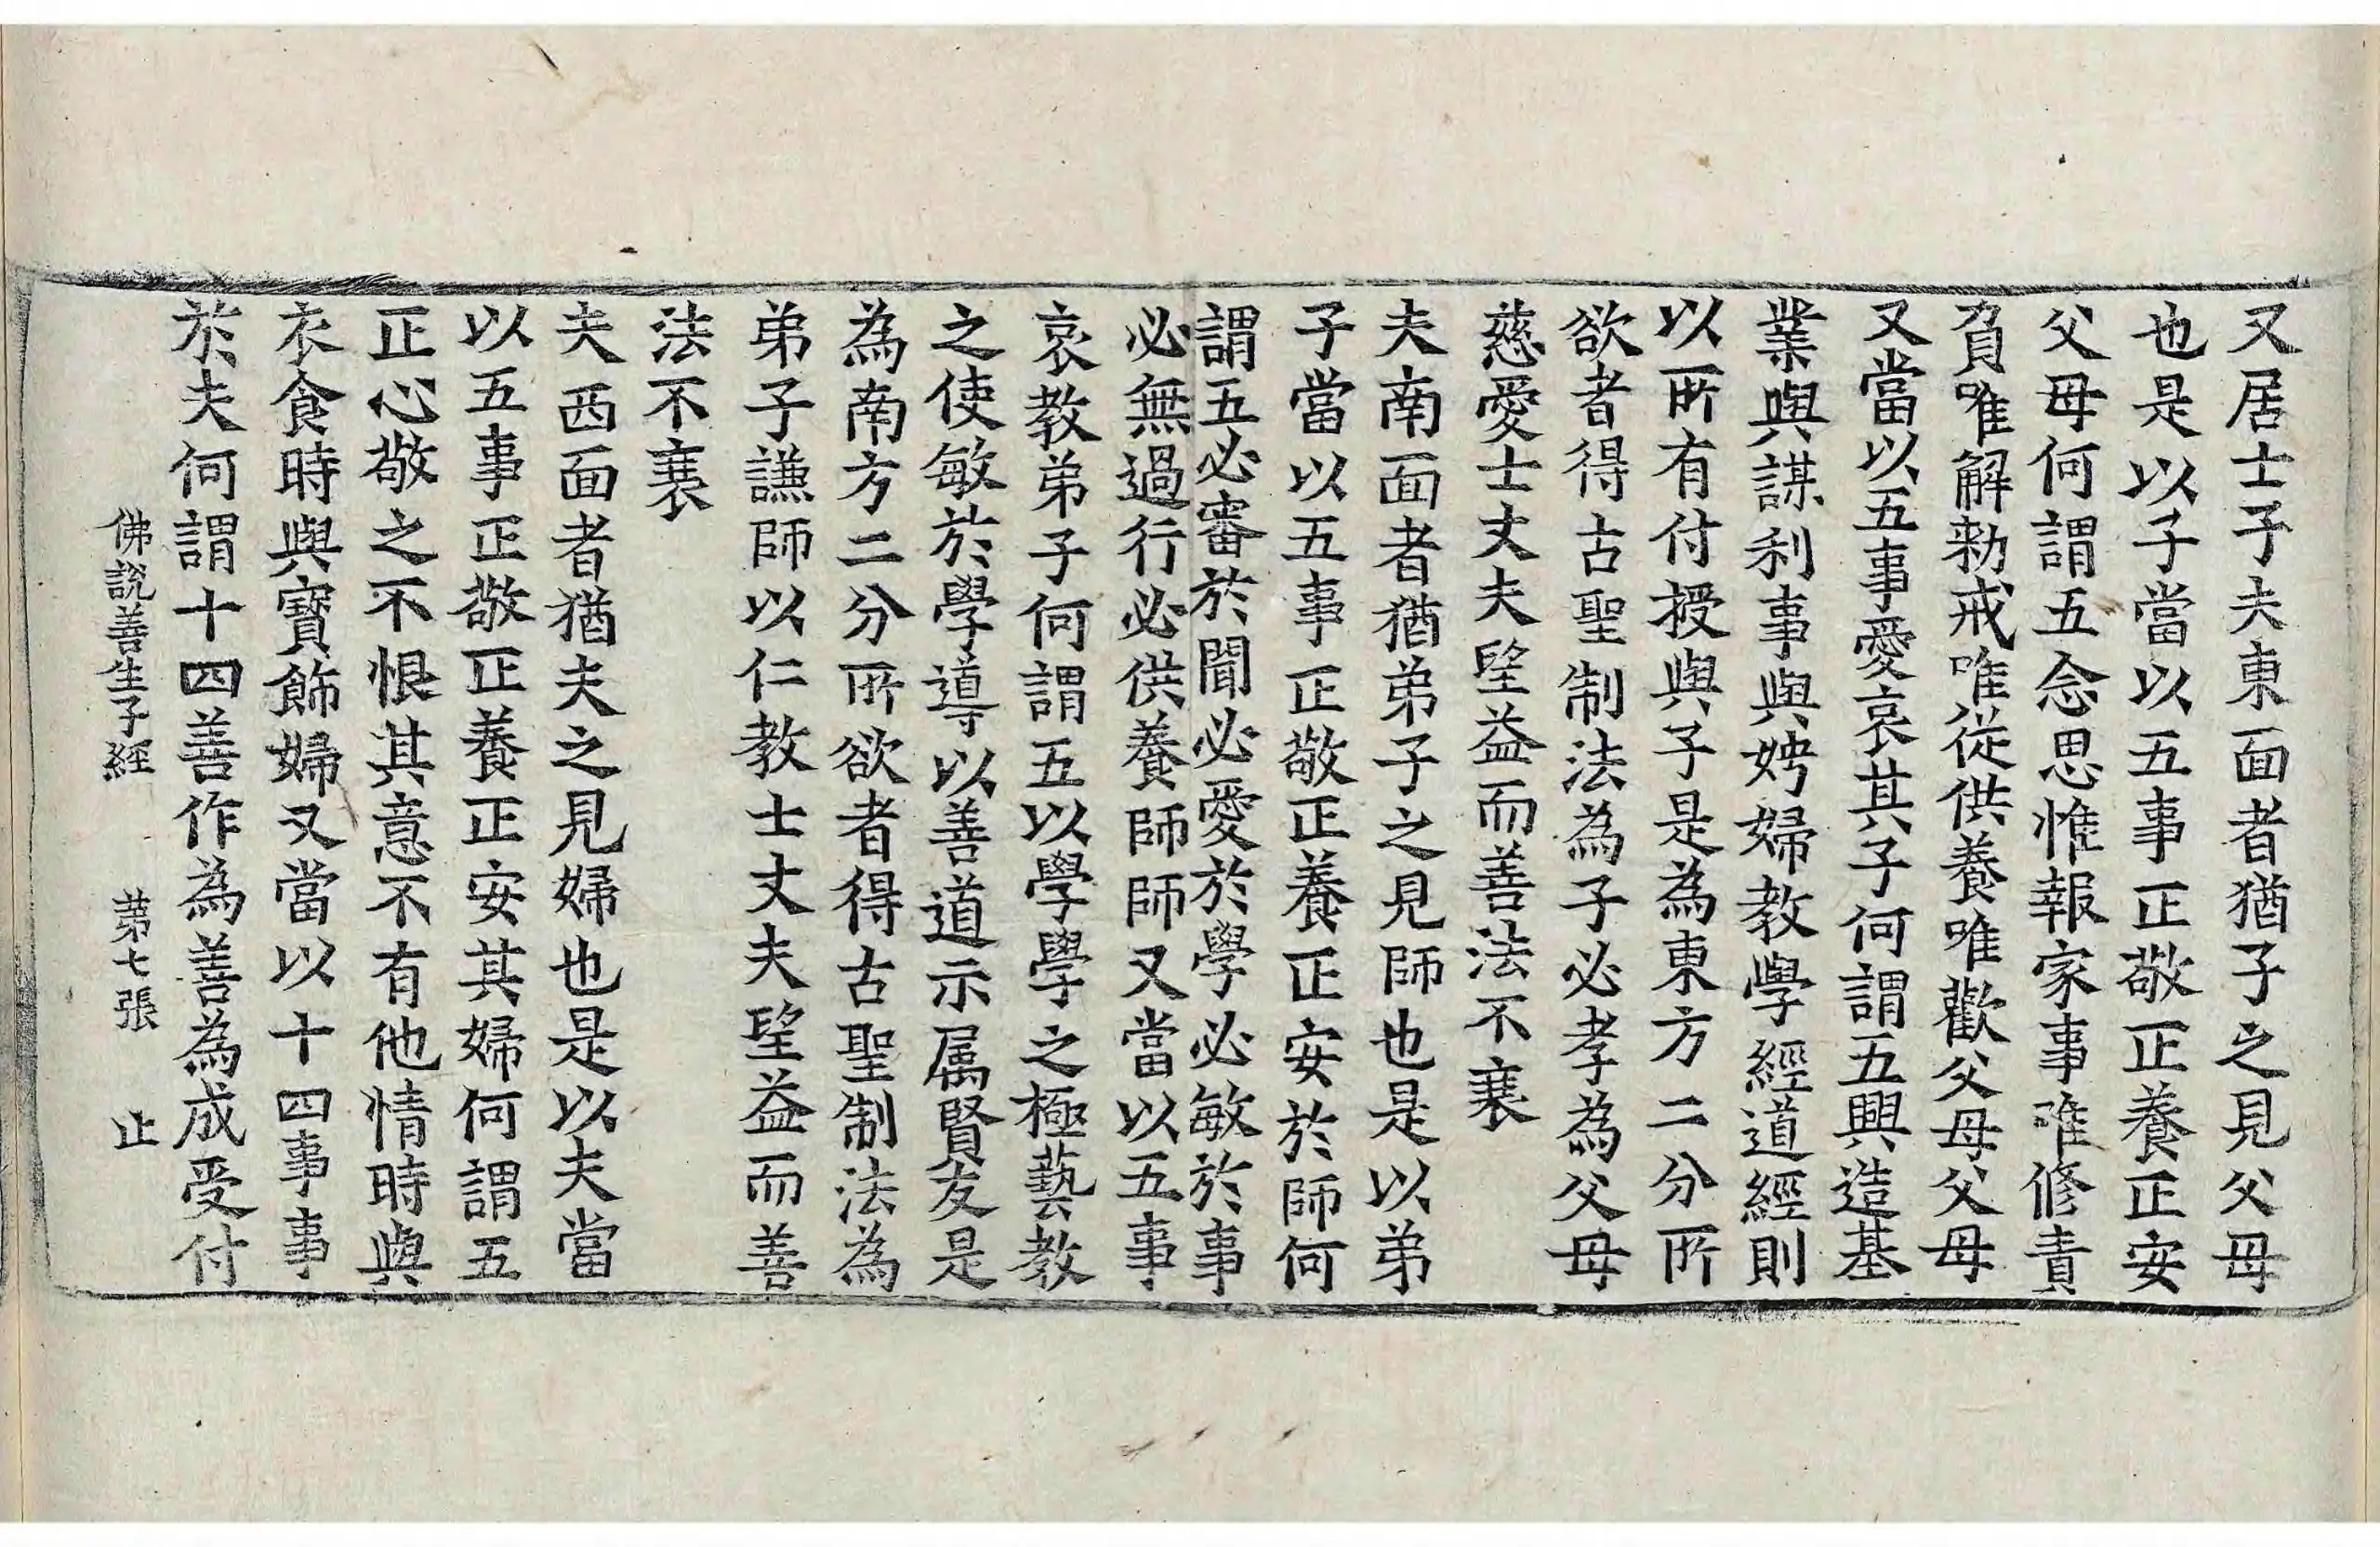 又居士子夫東面者猶子之見父母
也是以子當以五事正敬正養正安
父母何謂五念思惟報家事唯修責
負唯解勑戒唯從供養唯歡父母父母
又當以五事愛哀其子何謂五興造基
業與謀利事與娉婦教學經道經則
以所有付授與子是為東方二分所
欲者得古聖制法為子必孝為父母
慈愛士丈夫望益而善法不衰
夫南面者猶弟子之見師也是以弟
子當以五事正敬正養正安於師何
謂五必審於聞必愛於學必敏於事
必無過行必供養師師又當以五事
哀教弟子何謂五以學學之極藝教
之使敏於學導以善道示属賢友是
為南方二分所欲者得古聖制法為
弟子謙師以仁教士丈夫望益而善
法不衰
夫西面者猶夫之見婦也是以夫當
以五事正敬正養正安其婦何謂五
正心敬之不恨其意不有他情時與
衣食時與寶飾婦又當以十四事事
於夫何謂十四善作為善為成受付
佛說善生子經 第七張 止